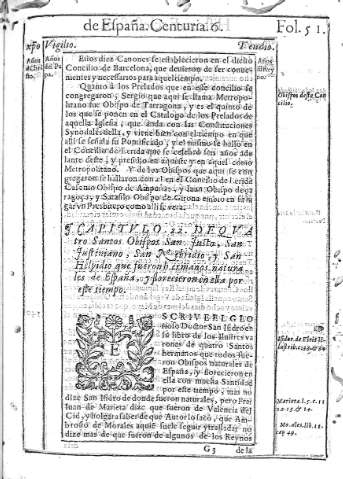 de España. Centuria. 6.
Fol. 51.
Vigilio.
Teudio.
Estos diez Canones se establecieron en el dicho
Concilio de Barcelona, que deuieron de ser conue-
nientes y necessarios para aquel tiempo.
Quanto à los Prelados que en este concilio se
congregaron; Sergio que aqui se llama Metropo-
litano fue Obispo de Tarragona, y es el quinto de
los que se ponen en el Catalogo de los Prelados de
aquella Iglesia, que anda con las Constituciones
Synodales della, y viene bien con el tiempo en que
alli se señala su Pontificado, y el mismo se hallo en
el Concilio de Lerida que se celebrò seis años ade
lante deste, y presidio en aquel como
Metropolitano. Y de los Obispos que aqui se con
gregaron se hallaron con el en el Concilio de Lerida
Obispo de Ampurias, y Iuan Obispo de
ragoça, y Obispo de Girona embio en su lu
gar vn Presbytero como alli se vera.
Obispos deste Con
cilio.
¶ CAPITVLO. 22. DE QVA
tro Santos Obispos San Justo, San
Justiniano, San Nebridio, y San
Helpidio que fueron hermanos natura-
les de España, y florecieron en ella por
este tiempo.
ESCRIVE EL GLO
rioso Doctor San Isidro en
su libro de los Ilustres va
rones de quatro Santos
hermanos que todos fue
ron Obispos naturales de
España, y florecieron en
ella con mucha Santidad
por este tiempo, mas no
dize San Isidro de donde fueron naturales, pero Frai
Iuan de Marieta dize que fueron de Valencia del
Cid, y holgara saber de que Autor lo sacò, que Am-
brosio de Morales aquiẽ suele seguir y trasladar no
dize mas de que fueron de algunos de los Reynos
Marieta l. 5. c. 11
Morales lib. 11
cap. 49.
G 3
de la